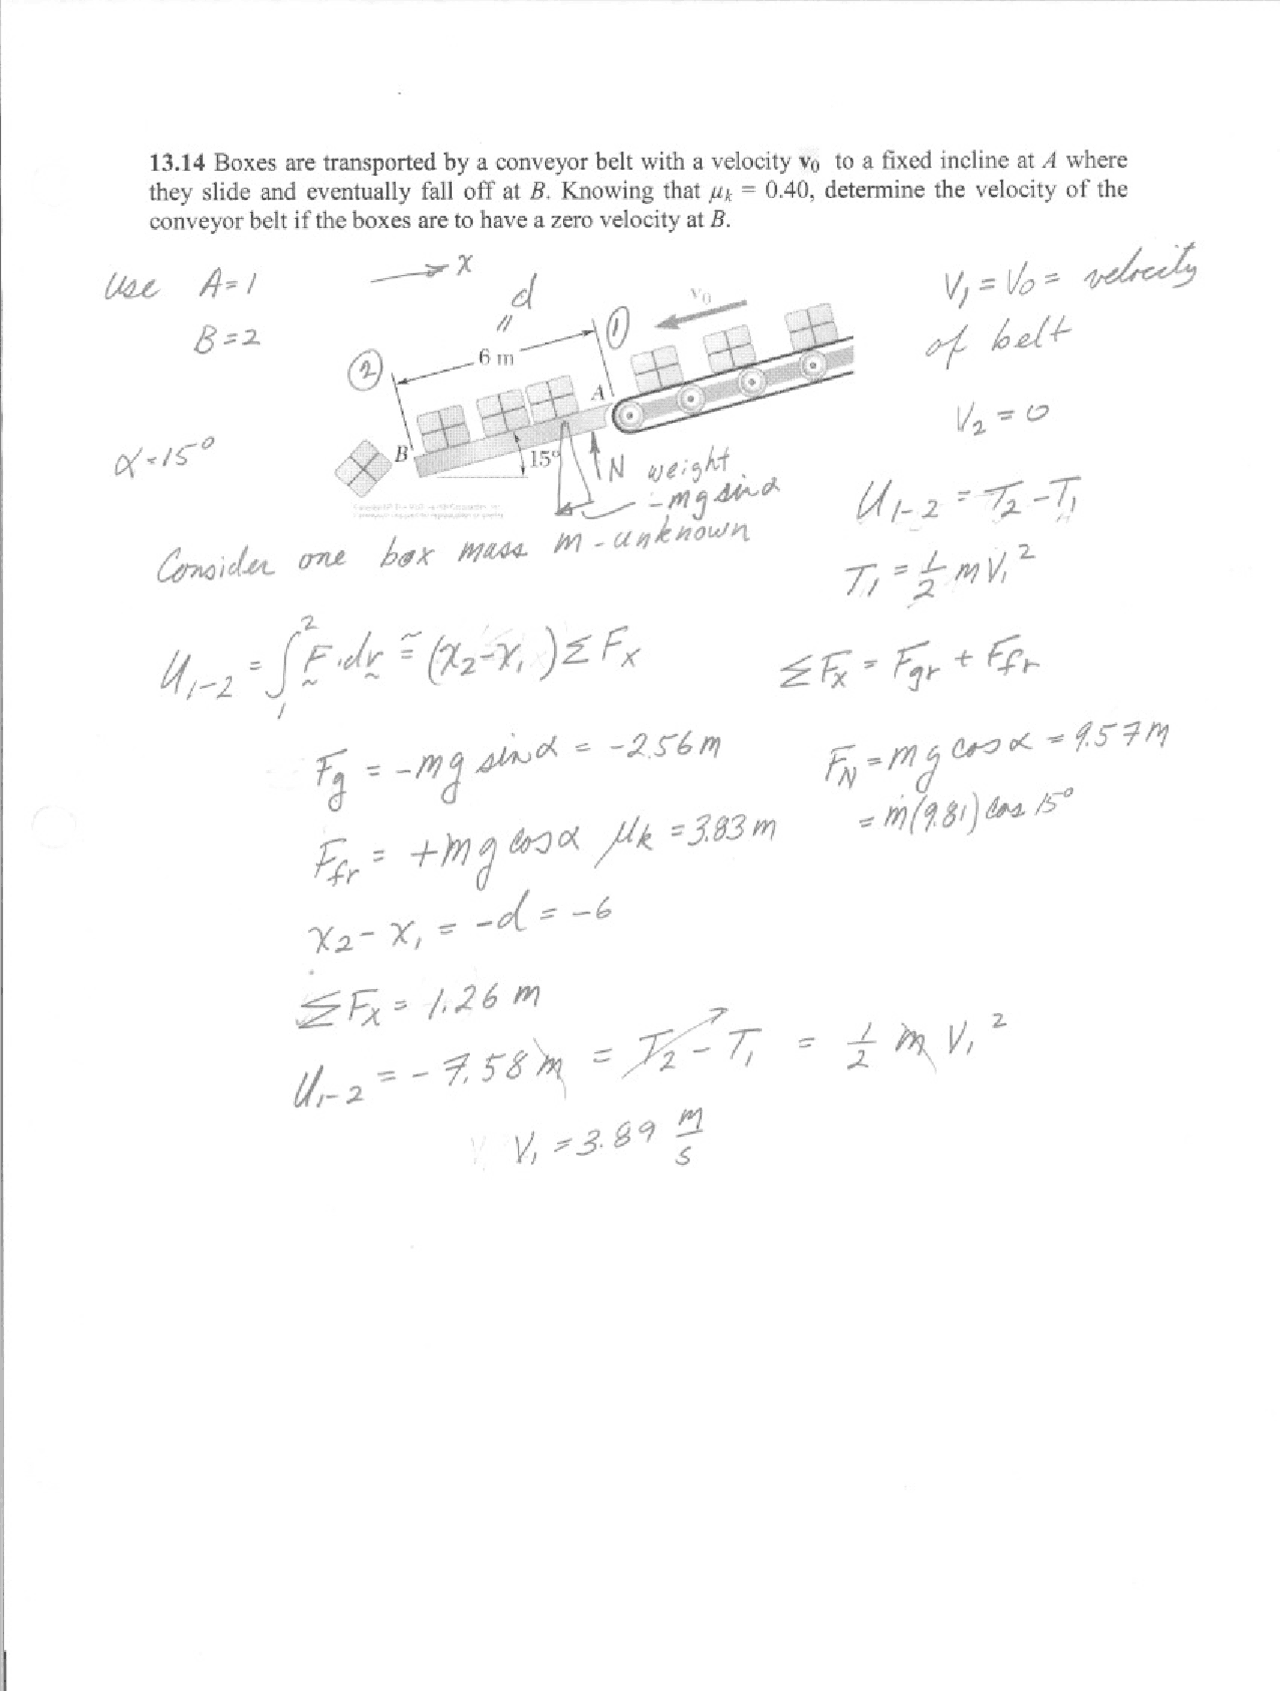 13.14 Boxes are transported by a conveyor belt with a velocity v₀ to a fixed incline at A where
they slide and eventually fall off at B. Knowing that μₖ = 0.40, determine the velocity of the
conveyor belt if the boxes are to have a zero velocity at B.
Use A=1
B=2
x
d
"
6 m
1
v₀
V₁ = V₀ = velocity
of belt
2
A
V₂ = 0
α=15°
B
15°
N weight
-mg sin α
U₁₋₂ = T₂-T₁
Consider one box mass m - unknown
T₁ = ½ m V₁²
U₁₋₂ = ∫₁² F·dr = (x₂-x₁) Σ Fx
Σ Fx = Fgr + Ffr
Fg = -mg sin α = -2.56m
FN = mg cos α = 9.57m
= m(9.81) cos 15°
Ffr = +mg cos α μk = 3.83m
x₂ - x₁ = -d = -6
Σ Fx = 1.26 m
U₁₋₂ = -7.58 m = T₂ - T₁ = ½ m V₁²
V₁ = 3.89 m/s